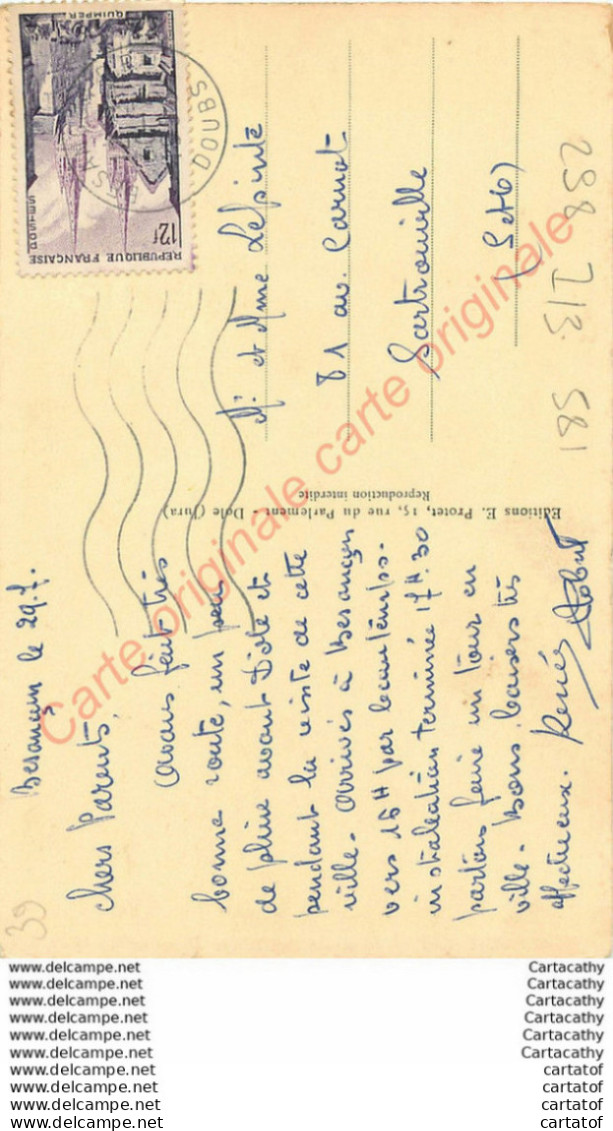 Besançon le 29.7.
Chers Parents,
Avons fait très
bonne route, un peu
de pluie avant Dôle et
pendant la visite de cette
ville. Arrivés à Besançon
vers 16H par beau temps.
installation terminée 17H.30
partons faire un tour en
ville. Bons baisers très
affectueux. Renée
Editions E. Protet, 15, rue du Parlement - Dole (Jura)
Reproduction interdite
Mr et Mme
81 av. Carnot
Sartrouville
(S et O)
QUIMPER
12f
REPUBLIQUE FRANÇAISE
DOUBS
298 213 581
39
Carte originale carte originale
www.delcampe.net Cartacathy
www.delcampe.net Cartacathy
www.delcampe.net Cartacathy
www.delcampe.net Cartacathy
www.delcampe.net Cartacathy
www.delcampe.net Cartacathy
www.delcampe.net cartatof
www.delcampe.net cartatof
www.delcampe.net cartatof
www.delcampe.net cartatof